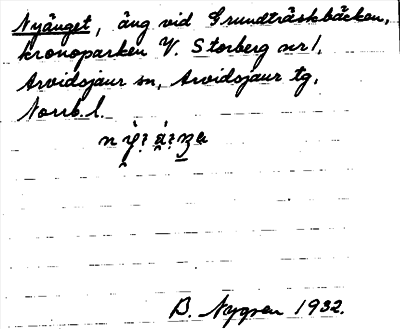 Nyänget, äng vid Grundträskbäcken,
kronoparken V. Storberg nr 1,
Arvidsjaur sn, Arvidsjaur tg,
Norrb.l.
B. Nygren 1932.